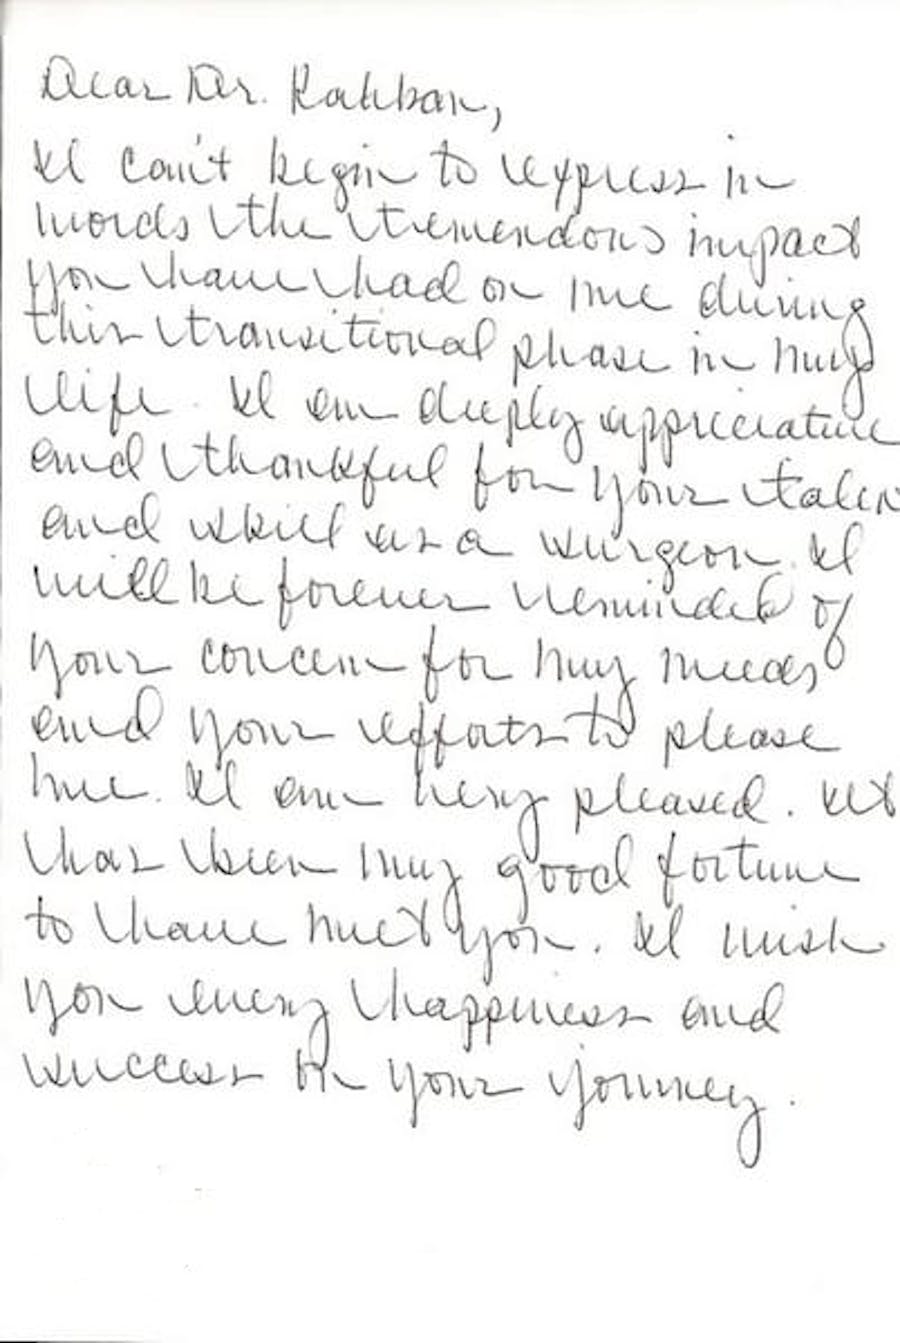 Dear Dr. Rahban,
I can't begin to express in
words the tremendous impact
you have had on me during
this transitional phase in my
life. I am deeply appreciative
and thankful for your talen
and skill as a surgeon. I
will be forever reminded of
your concern for my needs
and your efforts to please
me. I am very pleased. It
has been my good fortune
to have met you. I wish
you every happiness and
success on your journey.